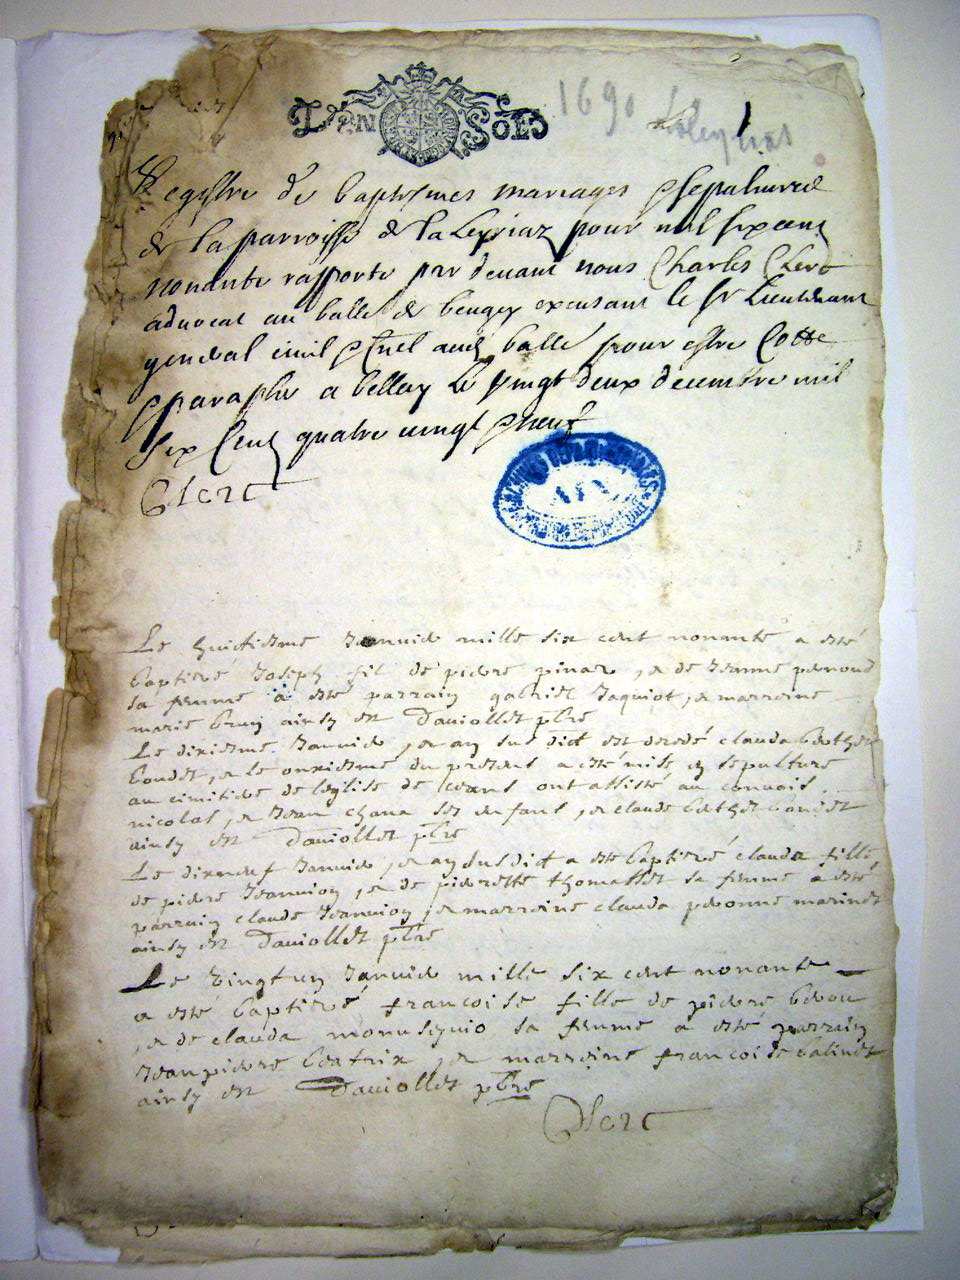 1690 Leyrias 1
Registre de baptismes mariages & sepultures
de la parroisse de la Leyriaz pour mil six cent
nonante rapporte par devant nous Charles Clerc
advocat au balle de beugey excusant le sr Lieutenant
general civil & crnel audt balle pour estre Cotte
& paraphe a belley le vingt deux decembre mil
six Cent quatre vingt & neuf
Clerc
ARCHIVES DEPARTEMENTALES AIN
Le huictiesme Janvier mille six cent nonante a esté
baptizé Joseph fil de pierre pinaz, & de Jeanne pernoud
sa femme a esté parrain gabriel Jaquiot, & marreine
marie brun ainsy est Daviollet pbre
Le dixiesme Janvier, & an susdict est decedé clauda berthet
boudet, & le onziesme du present a esté mise en sepulture
au cimitiere de leglise de ceans ont assisté au convois
nicolas, & Jean chana ses enfans, & claude berthet boudet
ainsy est Daviollet pbre
Le dixneuf Janvier, & an susdict a esté baptizé clauda fille
de pierre Jeannion, & de pierrette thomasset sa femme a esté
parrain claude Jeannion, & marreine clauda peronne marinet
ainsy est Daviollet pbre
Le vingt un Janvier mille six cent nonante
a esté baptizé francoise fille de pierre
& de clauda sa femme a esté parrain
Jean pierre beatrix, & marreine francoise balinet
ainsy est Daviollet pbre
Clerc